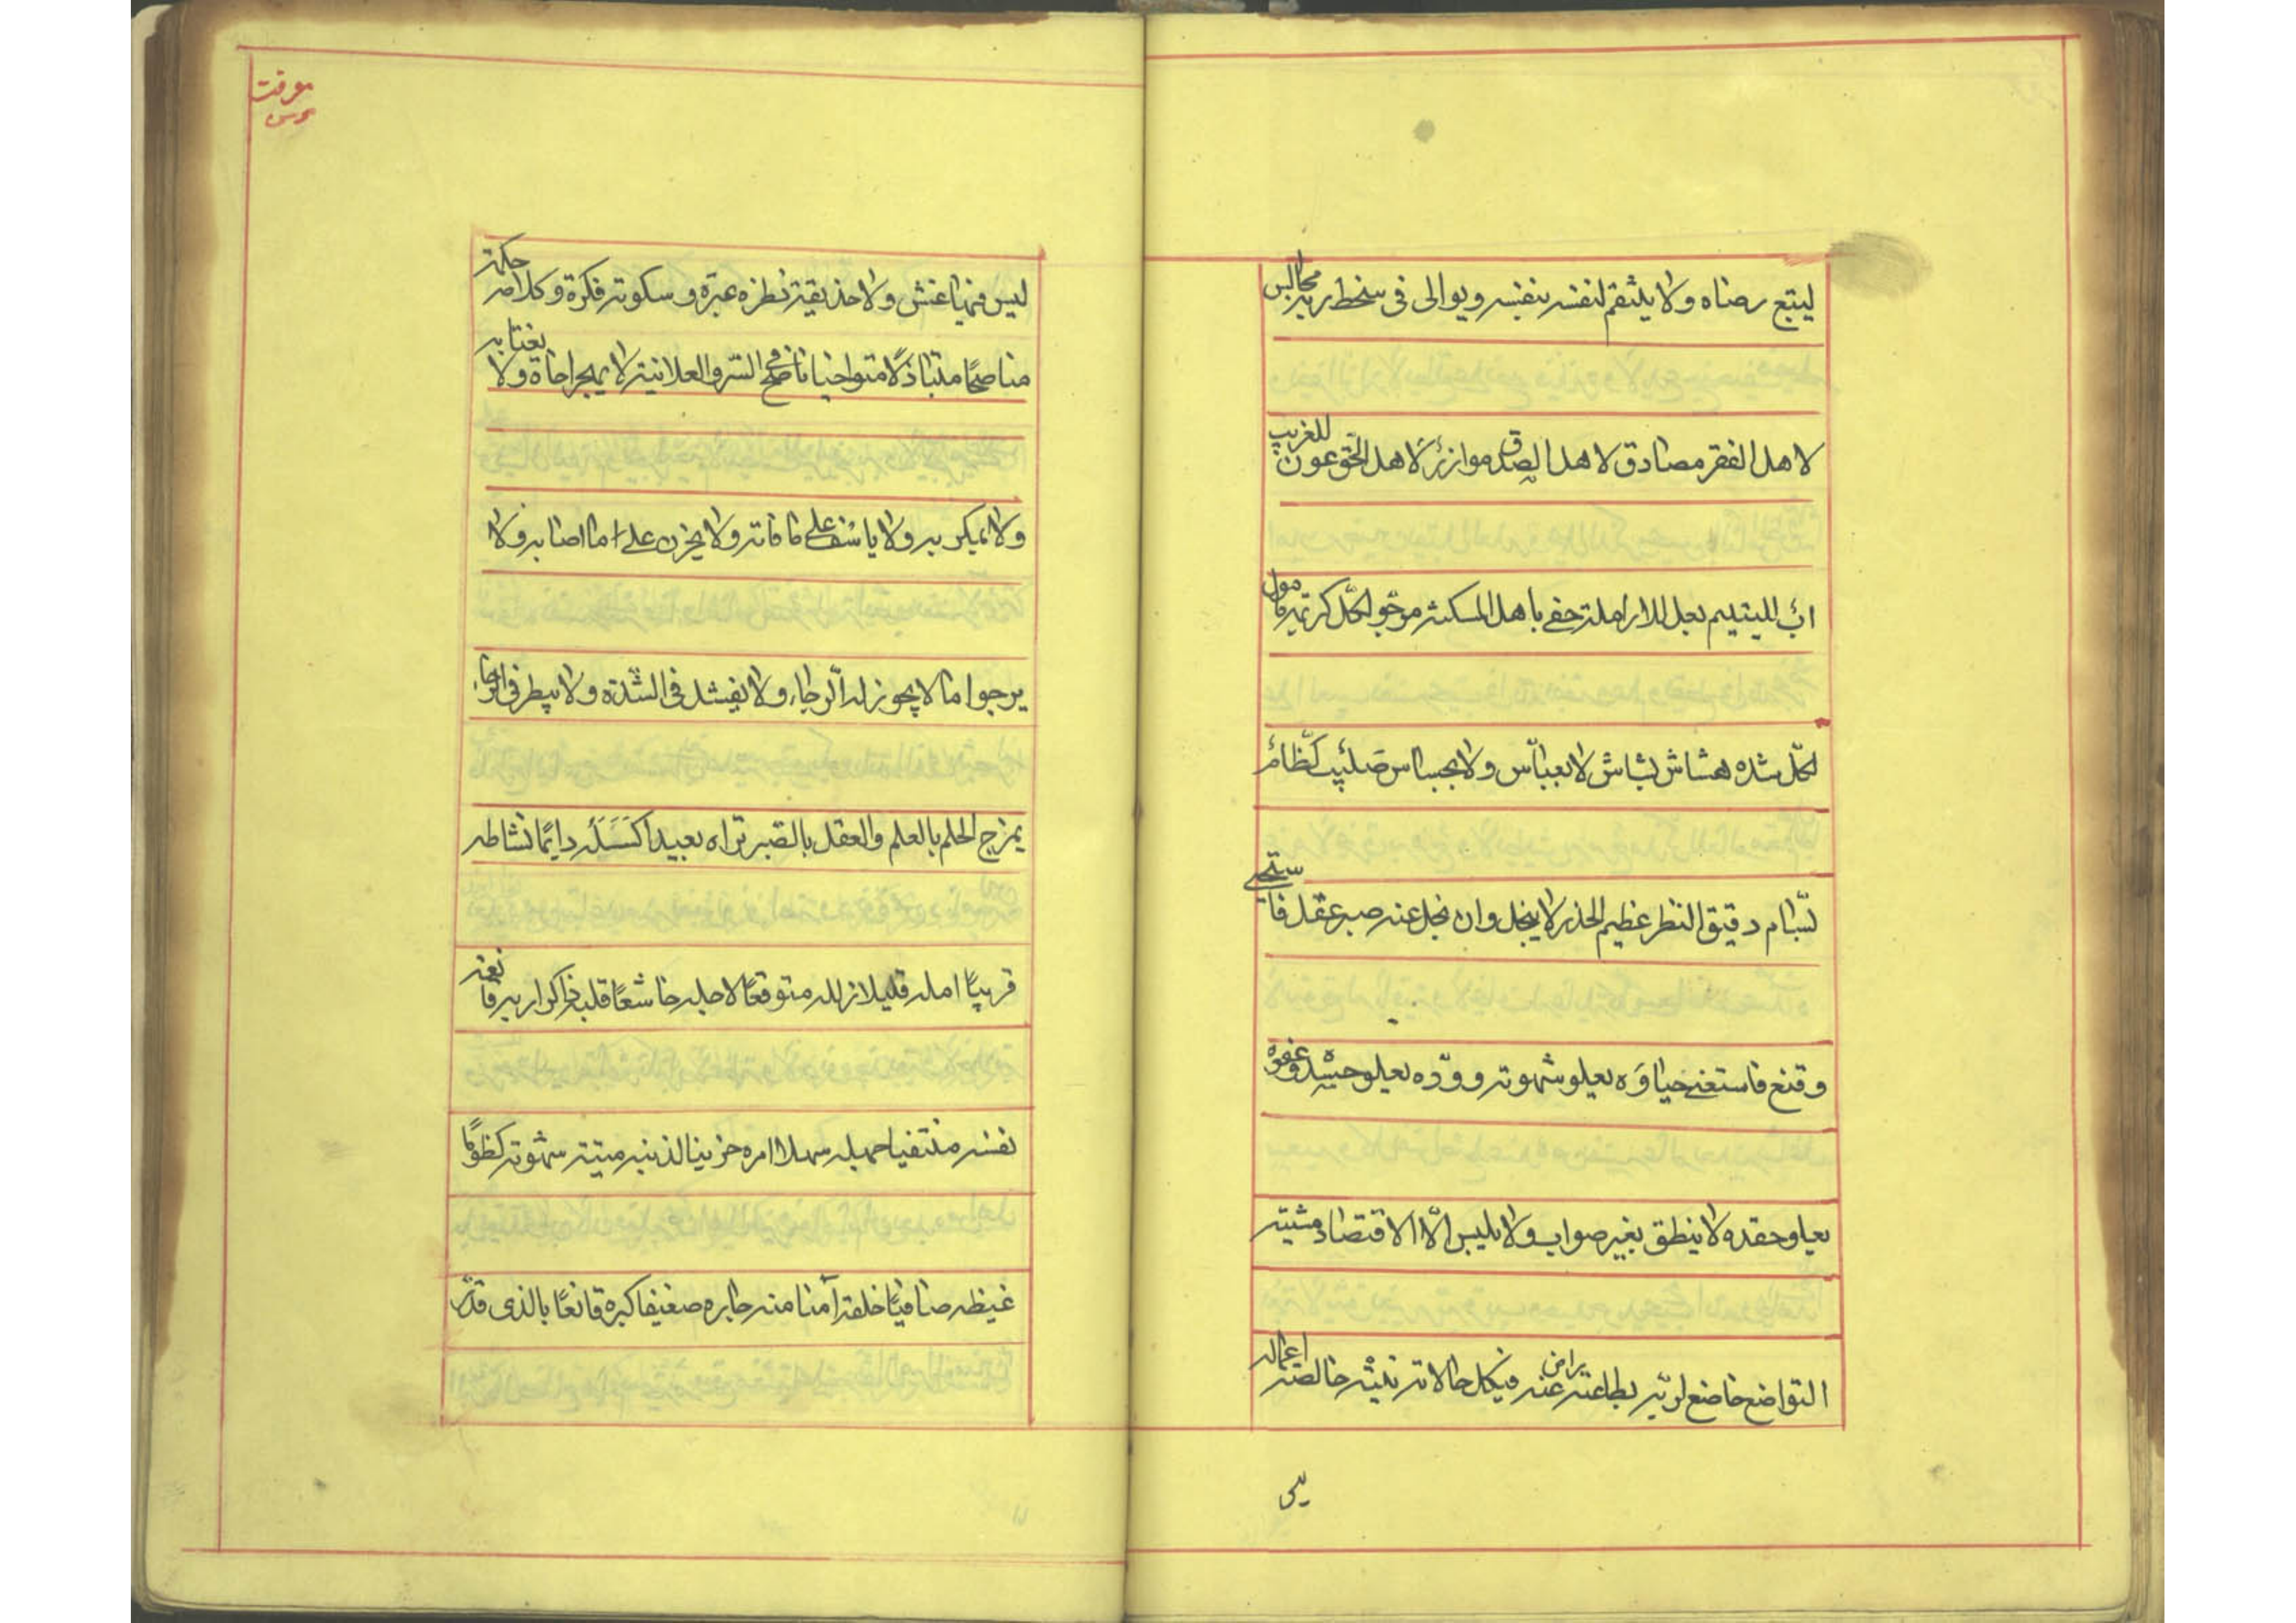 ليتبع رضاه ولا ينتقم لنفسه بنفسه ويوالى فى سخط ربه مجالس
لاهل الفقر مصادق لاهل الصدق موازر لاهل الحق عون للغريب
اب لليتيم بعل للارملة حفى باهل المسكنة مرجو لكل كريهة مامول
لكل شده هشاش بشاش لا بعباس ولا بجساس صليب كظام
بسام دقيق النظر عظيم الحذر لا يبخل وان بخل عنه صبر عقل فاستحيى
وقنع فاستغنى حياؤه يعلو شهوته وودّه يعلو حسده وعفوه
يعلو حقده لا ينطق بغير صواب ولا يلبس الّا الاقتصاد مشيته
التواضع خاضع لربّه بطاعته راض عنه فى كل حالاته نيته خالصة اعماله
ليس
معرفت
ليس فيها غش ولا خديعة نظره عبرة وسكوته فكرة وكلامه حكمة
مناصحًا متباذلًا متواخيا ناصح فى السّر والعلانية لا يهجر اخاه ولا يغتابه
ولا يمكر به ولا ياسف على ما فاته ولا يحزن على ما اصابه ولا
يرجوا ما لا يجوز له الّرجاء ولا يفشل فى الشّدة ولا يبطر فى الرخاء
يمزج الحلم بالعلم والعقل بالصّبر تراه بعيدا كَسَلَه دايمًا نشاطه
قريبًا امله قليلا زلله متوقعًا لاجله خاشعًا قلبه ذاكرا ربه قانعة
نفسه منتفيا جهله سهلا امره حزينا لذنبه ميتة شهوته كظومًا
غيظه صافيًا خلقه آمنا منه جاره ضعيفا كبره قانعًا بالذى قدّر